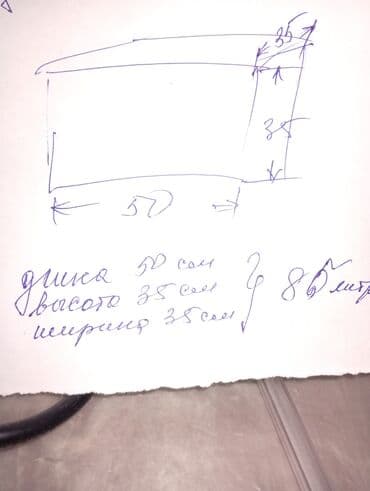 35
35
50
длина 50 см
высота 35 см
ширина 35 см
85 литр